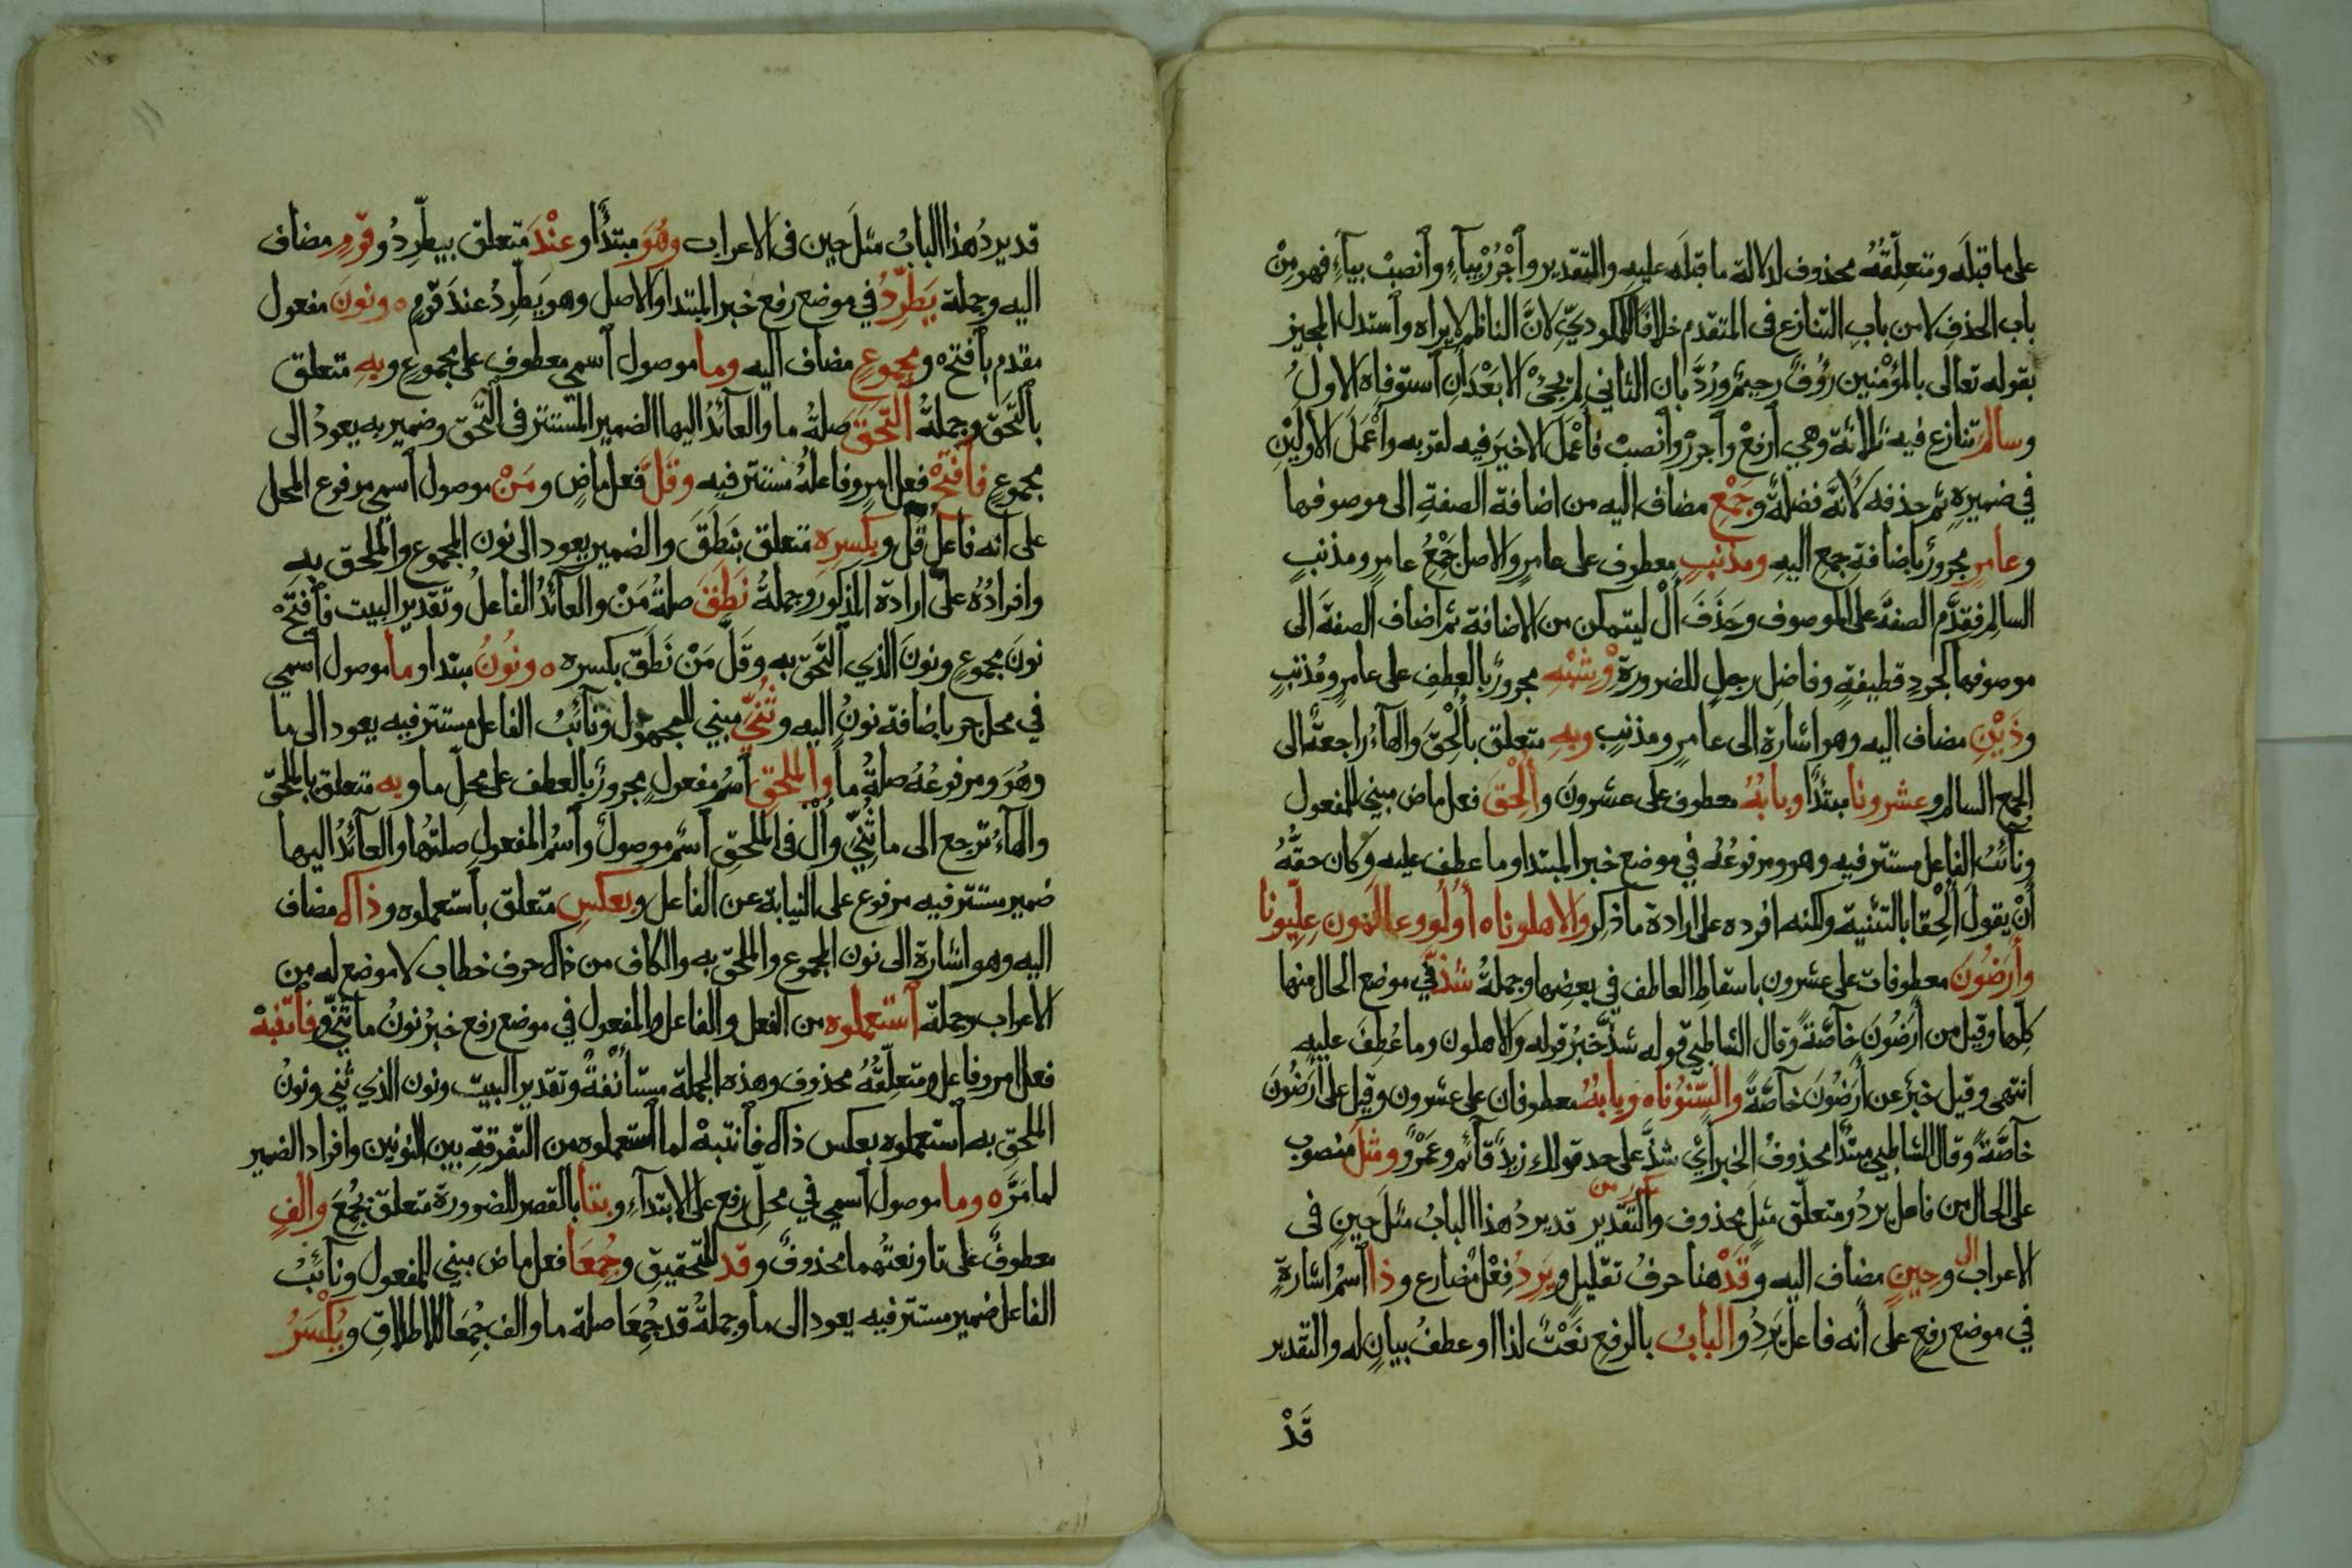 على ما قبله ومتعلقه محذوف لدلالة ما قبله عليه والتقدير وٱجْرُرْ بيآءٍ وٱنصبْ بيآءٍ فهو مِنْ
باب الحذفِ لا من بابِ التنازعِ فى المتقدم خلافًا للمكوديّ لانَّ الناظم لا يراه وٱستدل المجيز
بقوله تعالى بالمؤمنين رؤفٌ رحيمٌ ورُدَّ بان الثاني لم يجئْ الا بَعْدَ ان ٱستوفاه الاولُ
وسالم تنازع فيه ثلاثة وهي ٱرفعْ وٱجررْ وٱنصبْ فأعْمَلَ الاخيرَ فيه لقربه وأعْمَلَ الاولَيْنِ
في ضميرِهِ ثم حذفه لانّه فضلةٌ وجَمْعِ مضاف اليه من اضافة الصفةِ الى موصوفها
وعامرٍ مجرورٌ باضافةِ جمعِ اليهِ ومذنبِ معطوف على عامرٍ والاصل جَمْعُ عامرٍ ومذنبٍ
السالم فقدَّم الصفةَ على الموصوف وحَذَفَ أَلْ ليتمكن من الاضافة ثم اضاف الصفةَ الى
موصوفها كجردِ قطيفةٍ وفاضلِ رجلٍ للضرورة وَشِبْهِ مجرورٌ بالعطفِ على عامرٍ ومُذنبٍ
وذَيْنِ مضاف اليه وهو اشارة الى عامرٍ ومذنبٍ وبهِ متعلق بأُلْحِقَ والهآءُ راجعةٌ الى
الجمع السالم وعشرونا مبتدأ وبابُهُ معطوف على عشرونَ وأُلْحِقَ فعل ماض مبني للمفعول
ونآئبُ الفاعل مستتر فيه وهو ومرفوعُهُ في موضع خبر المبتدا وما عطف عليه وكان حقُّهُ
أنْ يقولَ أُلْحِقا بالتثنية ولكنه افرده على ارادة ما ذكر والاهلونا ه أولو وعالمون عِلِيّونا
وأَرَضُونَ معطوفات على عشرون باسقاطِ العاطف في بعضها وجملةُ شذَّ في موضع الحال منها
كلِّها وقيل من أرَضُونَ خآصّةً وقال الشاطبي قوله شذَّ خبرُ قوله والاهلون وما عُطِفَ عليه
انتهى وقيل خبرٌ عن أرَضُونَ خاصّةً والسِّنُونا ه وبابُهُ معطوفان على عشرون وقيل على أرَضُونَ
خآصّةً وقال الشاطبي مبتدأ محذوفُ الخبر أي شذَّ على حد قولك زيدٌ قآئمٌ وعَمْرٌو ومثلَ منصوب
على الحال من فاعل يردُ ومتعلّق مثل محذوف والتقدير قد يرد هذا البابُ مثلَ حينٍ فى
الاعراب وحينٍ مضاف اليه وقَدْ هنا حرفُ تقليلٍ ويَرِدُ فِعْل مضارع وذا ٱسمُ اشارةٍ
في موضع رفعٍ على أنه فاعل يَرِدُ والبابُ بالرفعِ نَعْتٌ لذا او عطفُ بيانٍ له والتقدير
قَدْ
قد يرد هذا البابُ مثلَ حين فى الاعراب وهُوَ مبتدأ وعنْدَ متعلق بيطّرِدُ وقومٍ مضاف
اليه وجملة يَطَّرِدُ في موضع رفع خبر المبتدا والاصل وهو يطّرِدُ عندَ قومٍ ه ونونَ مفعول
مقدم بأفتحْ ومجموعٍ مضاف اليه وما موصول ٱسمي معطوف على مجموعٍ وبِهِ متعلق
بٱلتَحَقَ وجملةُ ٱلْتَحَقَ صلةُ ما والعآئدُ اليها الضمير المستتر فى التَحق وضمير به يعودُ الى
مجموعٍ فٱفتحْ فعل امرٍ وفاعلُهُ مستتر فيه وقَلَّ فعل ماضٍ ومَنْ موصول ٱسمي مرفوع المحل
على انه فاعل قَلَّ وبكسرِه متعلق بنَطَقَ والضمير يعود الى نون المجموع والملحق به
وافرادُهُ على ارادة المذكور وجملةُ نَطَقَ صلةُ مَنْ والعآئدُ الفاعلُ وتقدير البيت فٱفتحْ
نونَ مجموعٍ ونونَ الذي ٱلتحق به وقَلَّ مَنْ نَطَقَ بكسره ه ونُونُ مبتدا وما موصول ٱسمي
في محل جر باضافة نونُ اليه وثُنّيَ مبني للمجهول ونآئبُ الفاعل مستتر فيه يعود الى ما
وهُوَ ومرفوعُهُ صلةُ ما والملحقِ ٱسمُ مفعولٍ مجرورٌ بالعطف على محلّ ما وبه متعلق بالملحَق
والهآءُ ترجع الى ما ثُنّيَ وأَلْ فى الملحقِ ٱسمٌ موصولٌ وٱسمُ المفعولِ صلتُها والعآئدُ اليها
ضمير مستتر فيه مرفوع على النيابة عن الفاعل وبعكسِ متعلق بٱستعملوه وذاك مضاف
اليه وهو اشارة الى نون المجموع والملحق به والكاف من ذاك حرف خطاب لا موضع له من
الاعراب وجملة ٱستعملوه من الفعل والفاعل والمفعول في موضع رفع خبرُ نونُ ما ثُنّيَ وفٱنتبهْ
فعل امر وفاعل ومتعلّقُهُ محذوف وهذه الجملة مستأنفةٌ وتقدير البيت ونون الذي ثُنّي ونونُ
الملحقِ به ٱستعملوه بعكس ذاك فٱنتبهْ لما ٱستعملوه من التفرقةِ بين النونين وافراد الضمير
لما مَرَّ ه وما موصول ٱسمي في محلّ رفع على الابتدآءِ وبتا بالقصر للضرورة متعلق بجُمِعَ والفٍ
معطوفٌ على تا ونعتُهما محذوفٌ وقد للتحقيق وجُمِعَا فعل ماض مبني للمفعول ونآئبُ
الفاعل ضمير مستتر فيه يعود الى ما وجملةُ قد جُمِعَا صلة ما والف جُمِعَا للاطلاقِ ويُكْسَرُ